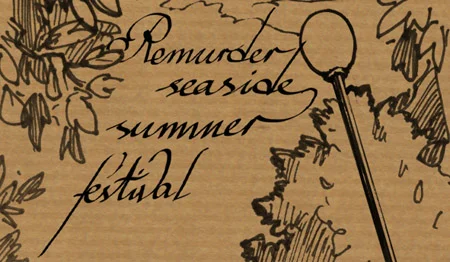 Remurder
seaside
summer
festival